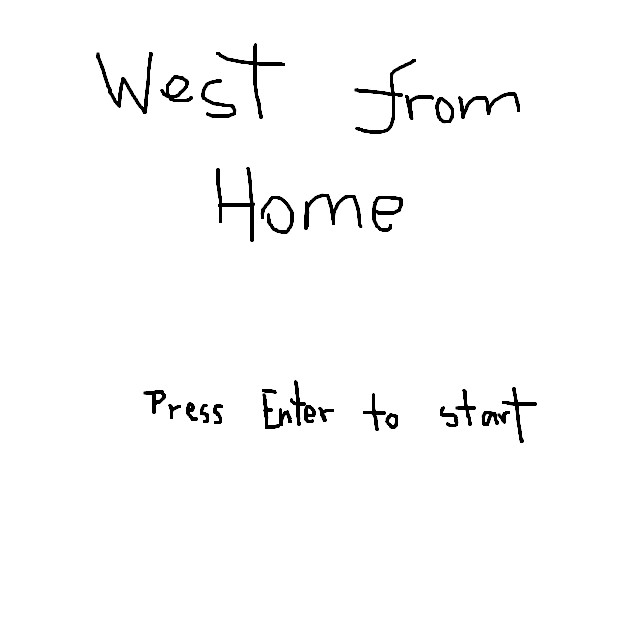 West from
Home
Press Enter to start